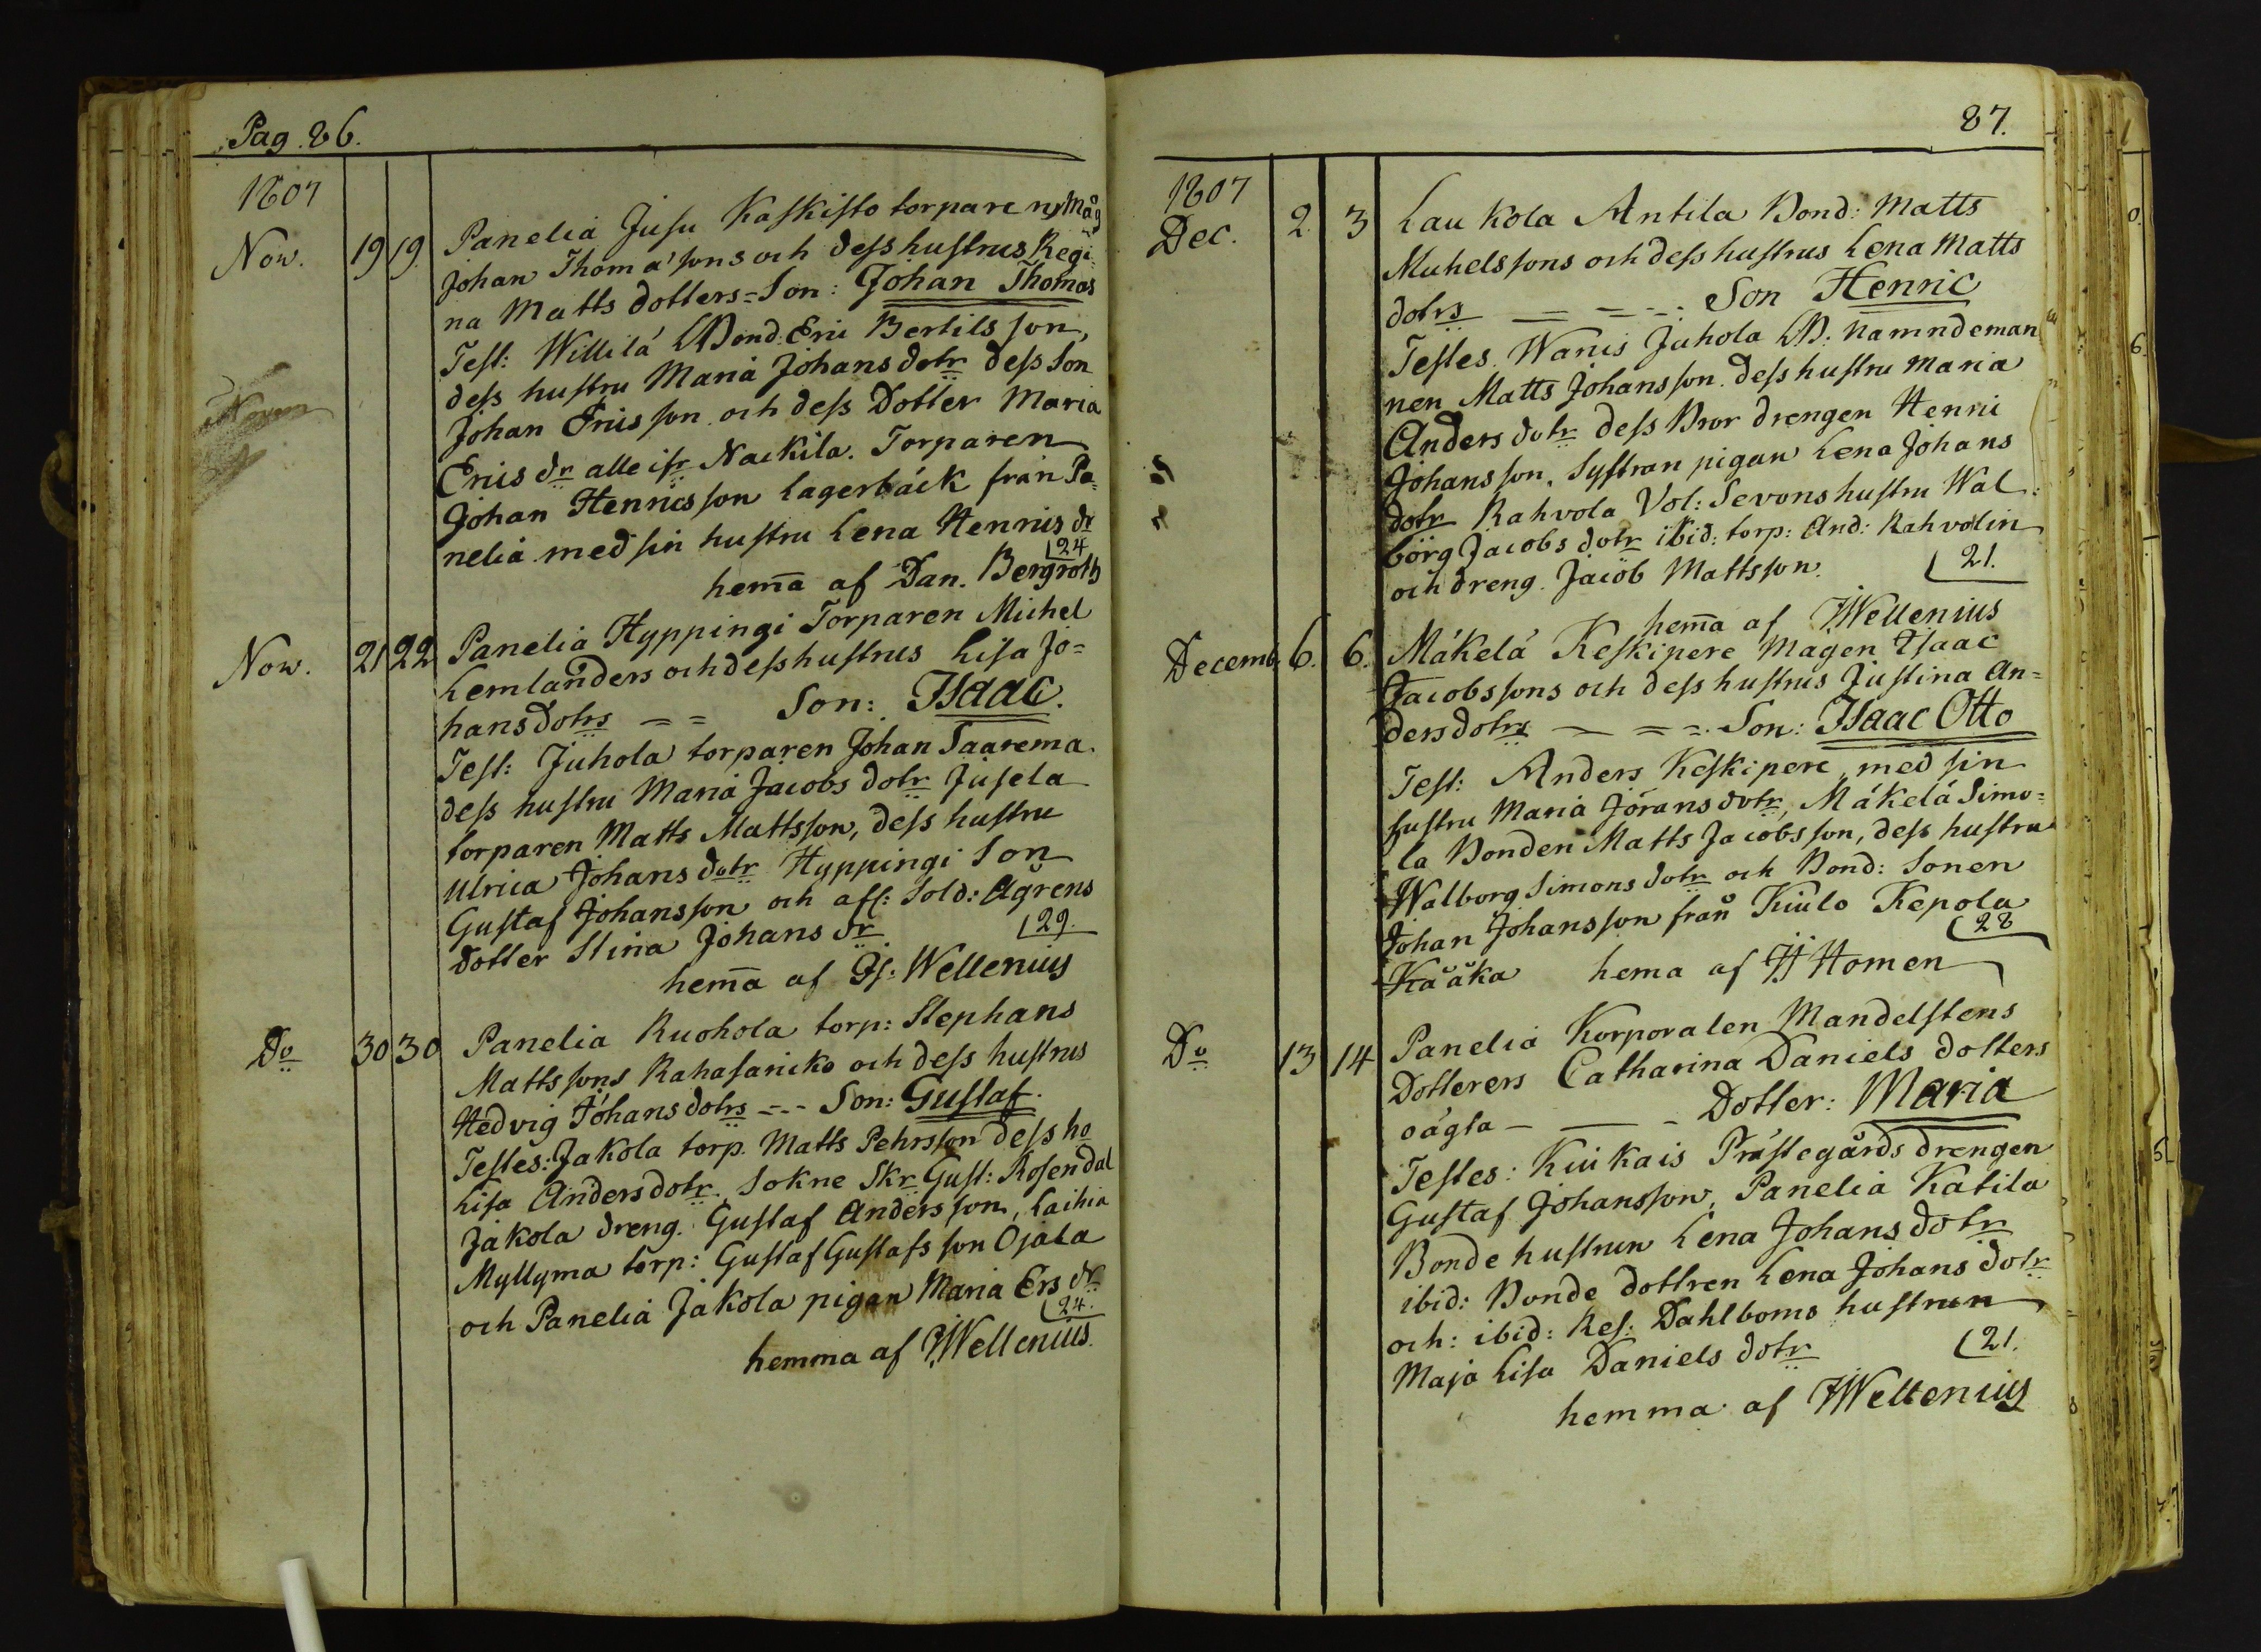 Pag. 86.
1807
Nov. 19 19. Panelia Jusu Kaskisto torpare ny Måg
Johan Thomæ sons och dess hustrus Regi
na Matts dotters = Son: Johan Thomas
Test: Willilä Bond: Eric Bertils son,
dess hustru Maria Johans dotr dess Son
Johan Erics son. och dess Dotter Maria
Erics dr alle ifr Nackila. Torparen
Johan Henrics son Lagerbäck från Pa=
nelia med sin hustru Lena Henrics dr
24
hem̄a af Dan. Bergroth
Nov. 21 22 Panelia Hyppingi Torparen Michel
Lemlanders och dess hustrus Lisa Jo=
hansdotrs = = Son: Isaac.
Test: Juhola torparen Johan Saarema.
dess hustru Maria Jacobs dotr Jusela
torparen Matts Mattsson, dess hustru
Ulrica Johans dotr Hyppingi Son
Gustaf Johansson och afl: Sold: Agrens
dotter Stina Johans dr 29.
hem̄a af Is: Wellenius
Do 30 30 Panelia Ruohola torp: Stephans
Mattssons Rahasaricko och dess hustrus
Hedvig Johansdotrs =-- Son: Gustaf.
Testes: Jakola torp. Matts Pehrsson dess ho
Lisa Andersdotr. Sokne Skr Gust: Rosendal
Jakola dreng. Gustaf Andersson, Laihia
Myllyma torp: Gustaf Gustafs son Ojala
och Panelia Jakola pigan Maria Ers dr
24.
hemma af JWellenius.
87.
1807
Dec. 2. 3 Laukola Antila Bond: Matts
Michelssons och dess hustrus Lena Matts
dotrs — = -- Son Henric
Testes. Wanis Juhola B: namndeman
nen Matts Johansson. dess hustru Maria
Anders dotr dess Bror drengen Henric
Johansson, Systran pigan Lena Johans
dotr Rahvola Vol: Sevons hustru Wal
borg Jacobs dotr ibid: torp: And: Rahvolin
och dreng. Jacob Mattsson. 21.
hem̄a af JWellenius
Decemb. 6. 6. Mäkelä Keskipere Magen Isaac
Jacobssons och dess hustrus Justina An=
dersdotrs — = = Son: Isaac Otto
Test: Anders Keskipere med sin
hustru Maria Jörans dotr, Mäkelä Simo=
la Bonden Matts Jacobsson, dess hustru
Walborg Simons dotr och Bond: Sonen
Johan Johansson från Kiulo Kepola
28
Kååka hema af JHomen
Do 13 14 Panelia Korporalen Mandelstens
Dotterers Catharina Daniels dotters
oägta — — - Dotter: Maria
Testes: Kiukais Prästegårds drengen
Gustaf Johansson, Panelia Katila
Bonde hustrun Lena Johans dotr
ibid: Bonde dottren Lena Johans dotr
och: ibid: Res: Dahlboms hustrun
Maja Lisa Daniels dotr 21.
hemma af JWellenius